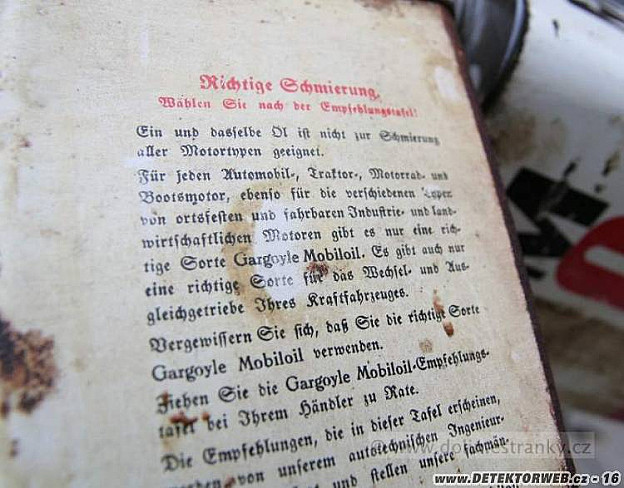 Richtige Schmierung.
Wählen Sie nach der Empfehlungstafel!
Ein und dasselbe Öl ist nicht zur Schmierung
aller Motortypen geeignet.
Für jeden Automobil-, Traktor-, Motorrad- und
Bootsmotor, ebenso für die verschiedenen Typen
von ortsfesten und fahrbaren Industrie- und land-
wirtschaftlichen Motoren gibt es nur eine rich-
tige Sorte Gargoyle Mobiloil. Es gibt auch nur
eine richtige Sorte für das Wechsel- und Aus-
gleichgetriebe Ihres Kraftfahrzeuges.
Vergewissern Sie sich, daß Sie die richtige Sorte
Gargoyle Mobiloil verwenden.
Ziehen Sie die Gargoyle Mobiloil-Empfehlungs-
tafel bei Ihrem Händler zu Rate.
Die Empfehlungen, die in dieser Tafel erscheinen,
von unserem autotechnischen Ingenieur-
und stellen unsere fachmän-
M
www.DETEKTORWEB.cz - 16